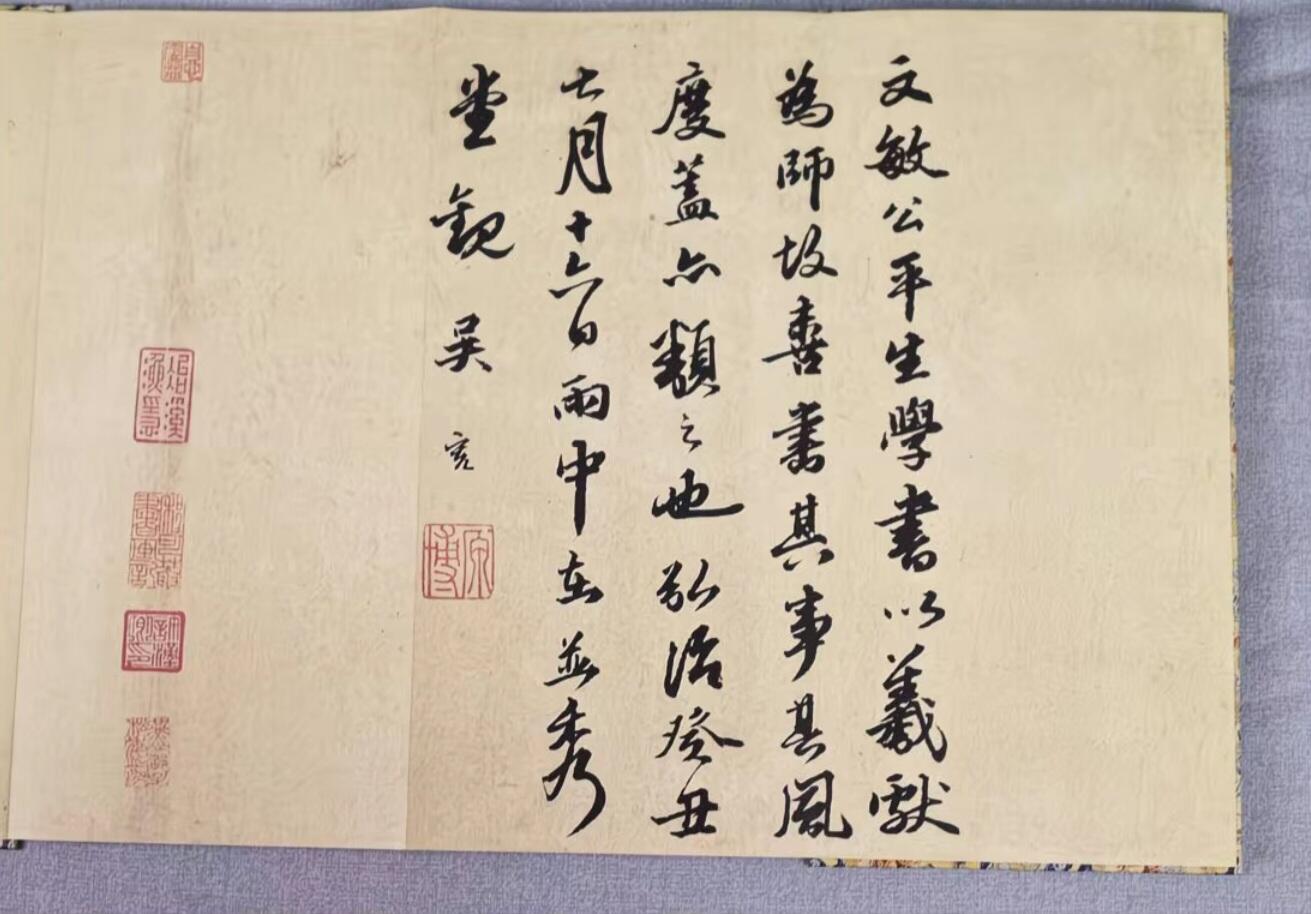 文敏公平生學書以羲獻
為師故喜書其事其風
度蓋亦類之也弘治癸丑
七月十六日雨中在並秀
堂觀 吳寬
原博